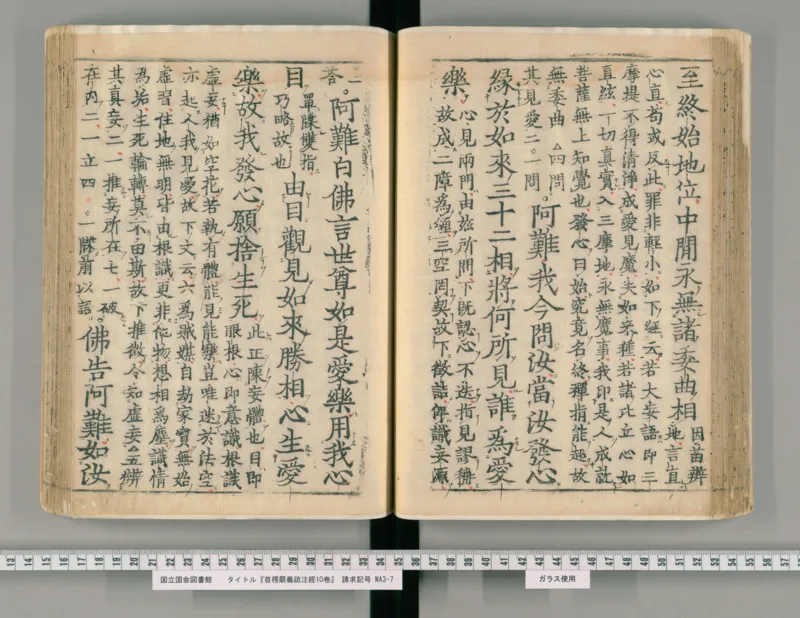 至終始地位中間永無諸委曲相
因首辨
地言直
心直苟或反此罪非輕小如下經云若大妄語即三
摩提不得清淨成愛見魔失如來種若諸比丘心如
直絃一切真實入三摩地永無魔事我印是人成就
菩薩無上知覺也發心曰始究竟名終禪指能趣故
無委曲 △四問
其見愛二。一問
阿難我今問汝當汝發心
緣於如來三十二相將何所見誰為愛
樂
心見兩門由茲所問下既認心不迭指見謬稱
故成二障為纏三空罔契故下徵詰俾識妄源
二
荅。阿難白佛言世尊如是愛樂用我心
目
單牒雙指
巧略故也
由目觀見如來勝相心生愛
樂故我發心願捨生死
此正陳妄體也目即
眼根心即意識根識
虛妄猶如空花若執有體能見能樂豈唯迷於法空
亦起人我見愛故下文云六為賊媒自劫家寶無始
虛習住地無明皆由根識更非他物想相為塵識情
為垢生死輪轉莫不由斯故下推徵令知虛妄△五辨
其真妄二一推妄所在七一破
在內二一立四。一牒前以語。
佛告阿難如汝
13 14 15 16 17 18 19 20 21 22 23 24 25 26 27 28 29 30 31 32 33 34 35 36 37 38 39 40 41 42 43 44 45 46 47 48 49 50 51 52 53 54 55 56 57
国立国会図書館 タイトル『首楞嚴義疏注經10巻』 請求記号 WA3-7
ガラス使用